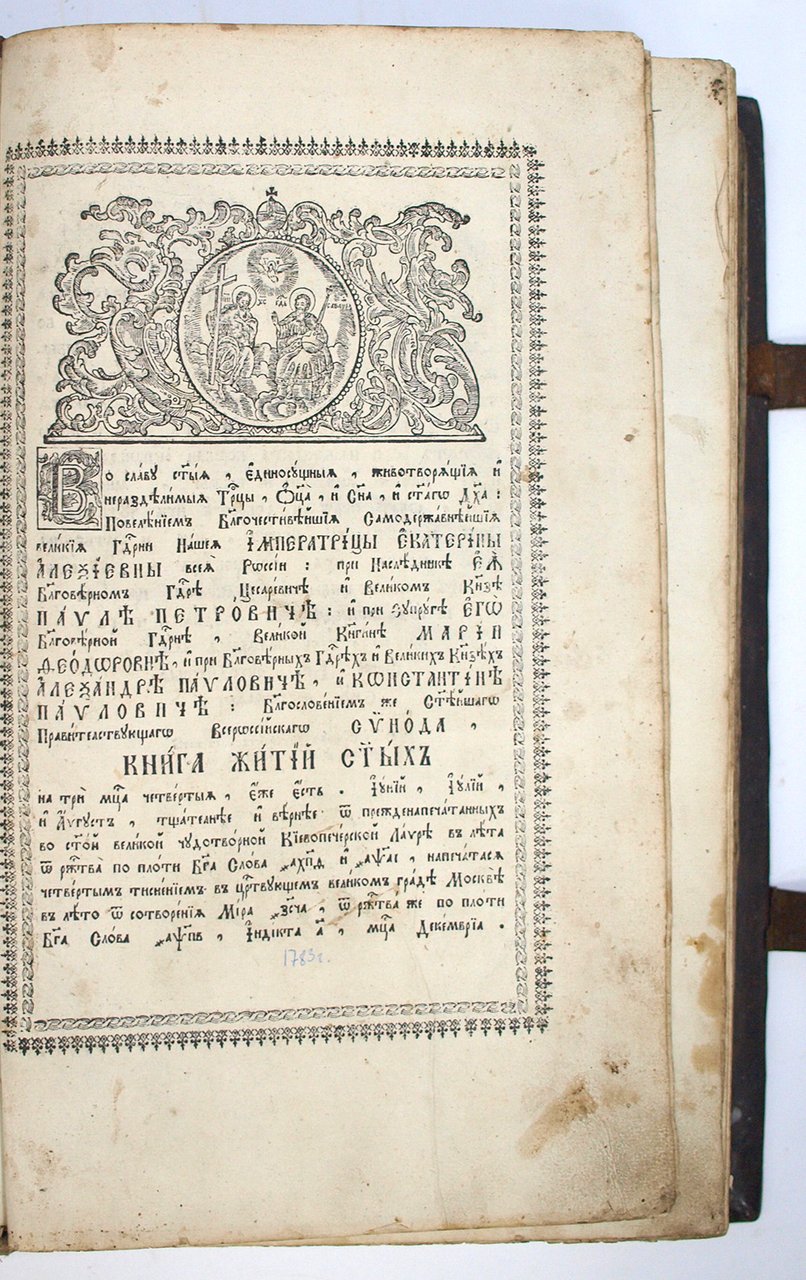 Во славу ст҃ыѧ , є҆диносꙋщныѧ , животворѧщїѧ и҆
нераздѣлимыѧ Трⷪ҇цы , Ѻ҆ц҃а , и҆ Сн҃а , и҆ ст҃а́гѡ Дх҃а :
Повелѣнїемъ Бл҃гочестивѣйшїѧ Самодержавнѣйшїѧ
великїѧ Гдⷭ҇рни Нашеѧ І҆МПЕРАТРИ́ЦЫ Є҆КАТЕРІ́НЫ
АЛЕѮІ́ЕВНЫ всеѧ̀ Рѡссі́и : при Наслѣ́дникѣ Є҆Ѧ̀
Бл҃говѣрномъ Гдⷭ҇рѣ Цесаревичѣ и҆ Великомъ Кн҃зѣ
ПА́ѴЛѢ ПЕТРО́ВИЧѢ : и҆ при Сꙋпрꙋгѣ Є҆ГѠ̀
Бл҃говѣрной Гдⷭ҇рнѣ , Великой Кнꙗги́нѣ МАРІ́И
Ѳ҆ЕО́ДѠРОВНѢ , и҆ при Бл҃говѣрныхъ Гдⷭ҇рѣхъ и҆ Великихъ Кн҃зѣхъ
АЛЕѮА́НДРѢ ПА́ѴЛОВИЧѢ , и҆ КѠНСТАНТІ́НѢ
ПА́ѴЛОВИЧѢ : Бл҃гословенїемъ же Ст҃ѣ́йшагѡ
Прави́телствꙋющагѡ Всерѡссі́йскагѡ СѴНО́ДА ,
КНИ́ГА ЖИТІ́Й СТ҃Ы́ХЪ
на трѝ мцⷭ҇а четвертыѧ , є҆́же є҆́сть . І҆ꙋ́нїй , І҆ꙋ́лїй ,
и҆ А҆́ѵгꙋстъ , тщателнѣе и҆ вѣ́рнѣе ѿ прежденапеча́танныхъ
во ст҃ой великой чꙋдотво́рной Кїевопече́рской Ла́ѵрѣ въ лѣ́та
ѿ рж҃тва̀ по пло́ти Бг҃а Сло́ва ... и҆ ... , напеча́тасѧ
четвертымъ тисненїемъ въ црⷭ҇твꙋющемъ великомъ гра́дѣ Москвѣ̀
въ лѣ́то ѿ сотворе́нїѧ Мі́ра ҂зсч҃а , ѿ рж҃тва̀ же по пло́ти
Бг҃а Сло́ва ҂аѱп҃в , І҆ндікта а҃ , мцⷭ҇а Декемврїа .
1783г.